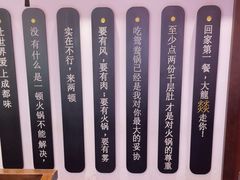 让世界爱上成都味
没有什么是一顿火锅不能解决，
实在不行，来两顿
要有风，要有肉；要有火锅，要有雾
吃鸳鸯锅已经是我对你最大的妥协
至少点两份千层肚才是对火锅的尊重
回家第一餐，大龍燚走你！